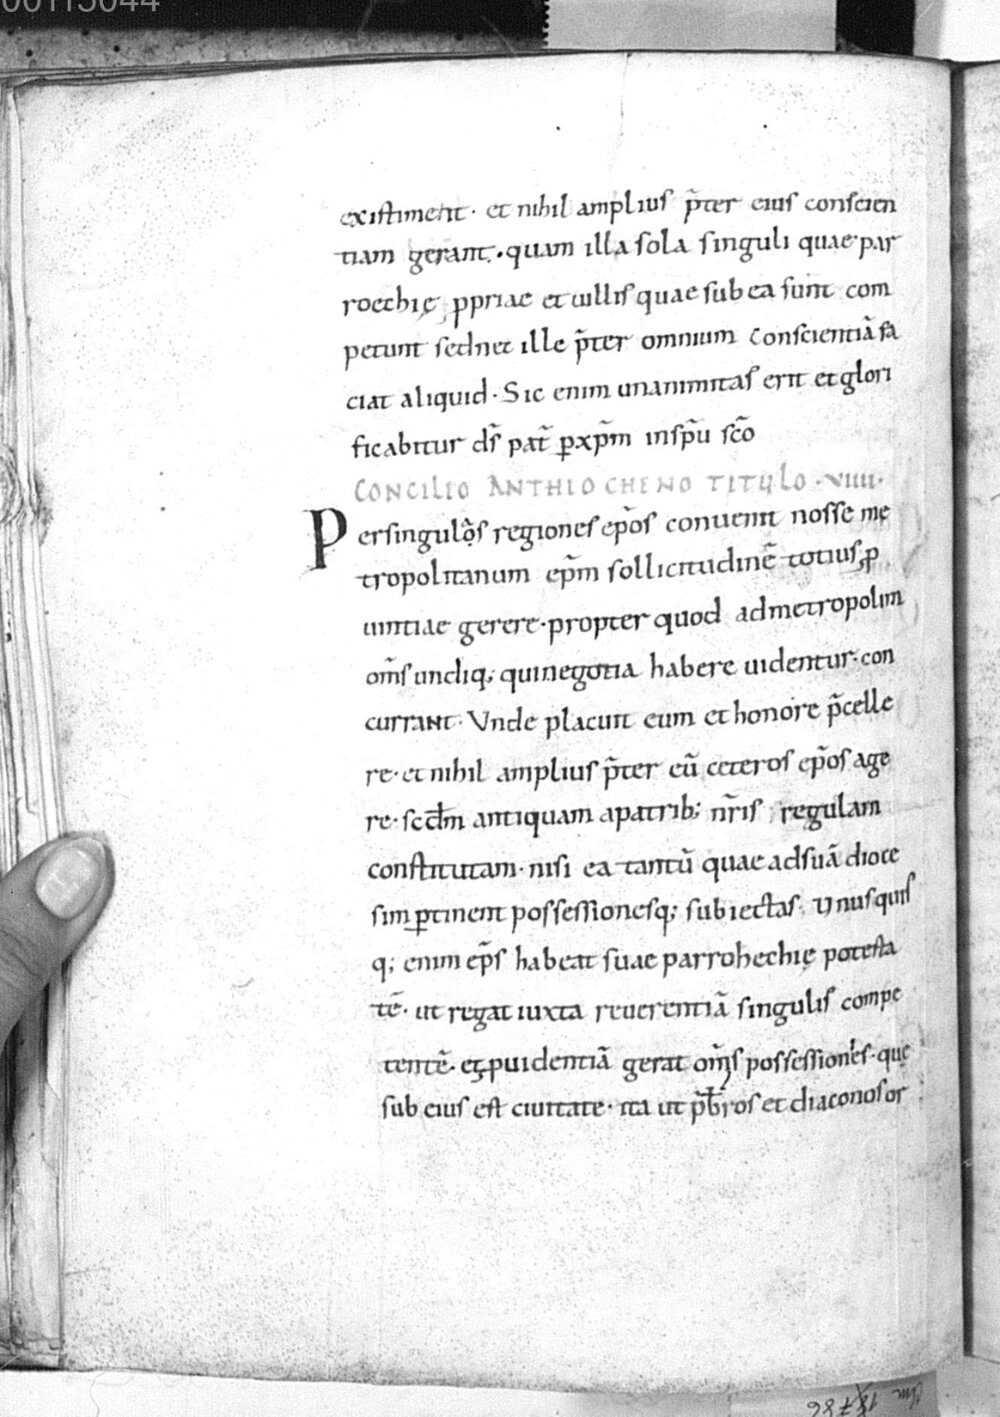 00113044
existiment· et nihil amplius p̃ter eius conscien
tiam gerant·quam illa sola singuli quae par
roechię ꝓpriae et uillis quae sub ea sunt com
petunt sed nec ille p̃ter omnium conscientiā fa
ciat aliquid· Sic enim unanimitas erit et glori
ficabitur d̃s pat̃ ꝑ xp̃m in sp̃u sc̃o
CONCILIO ANTHIOCHENO TITULO ·VIIII·
Per singulos regiones ep̃os conuenit nosse me
tropolitanum ep̃m sollicitudinē totius ꝓ
uintiae gerere·propter quod ad metropolim
om̃s undiq; qui negotia habere uidentur·con
currant· Vnde placuit eum et honore p̃celle
re·et nihil amplius p̃ter eũ ceteros ep̃os age
re·scd̃m antiquam a patrib; nr̃is regulam
constitutam·nisi ea tantũ quae ad suā dioce
sim ꝑtinent possessionesq; subiectas. Vnusquis
q; enim ep̃s habeat suae parrohechię potesta
tē· ut regat iuxta reuerentiā singulis compe
tentē· et ꝓuidentiā gerat om̃s possessiones·quę
sub eius est ciuitate· ita ut p̃b̃ros et diaconos or